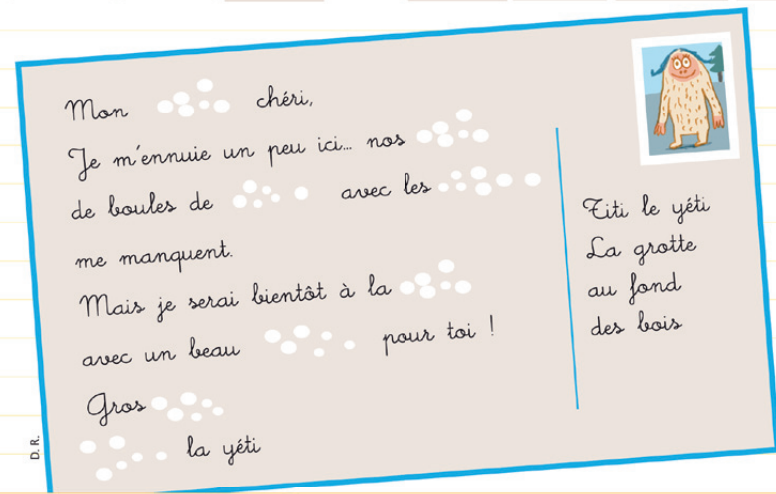 Mon chéri,
Je m'ennuie un peu ici... nos
de boules de avec les
me manquent.
Mais je serai bientôt à la
avec un beau pour toi !
Gros
la yéti
Titi le yéti
La grotte
au fond
des bois
D. R.